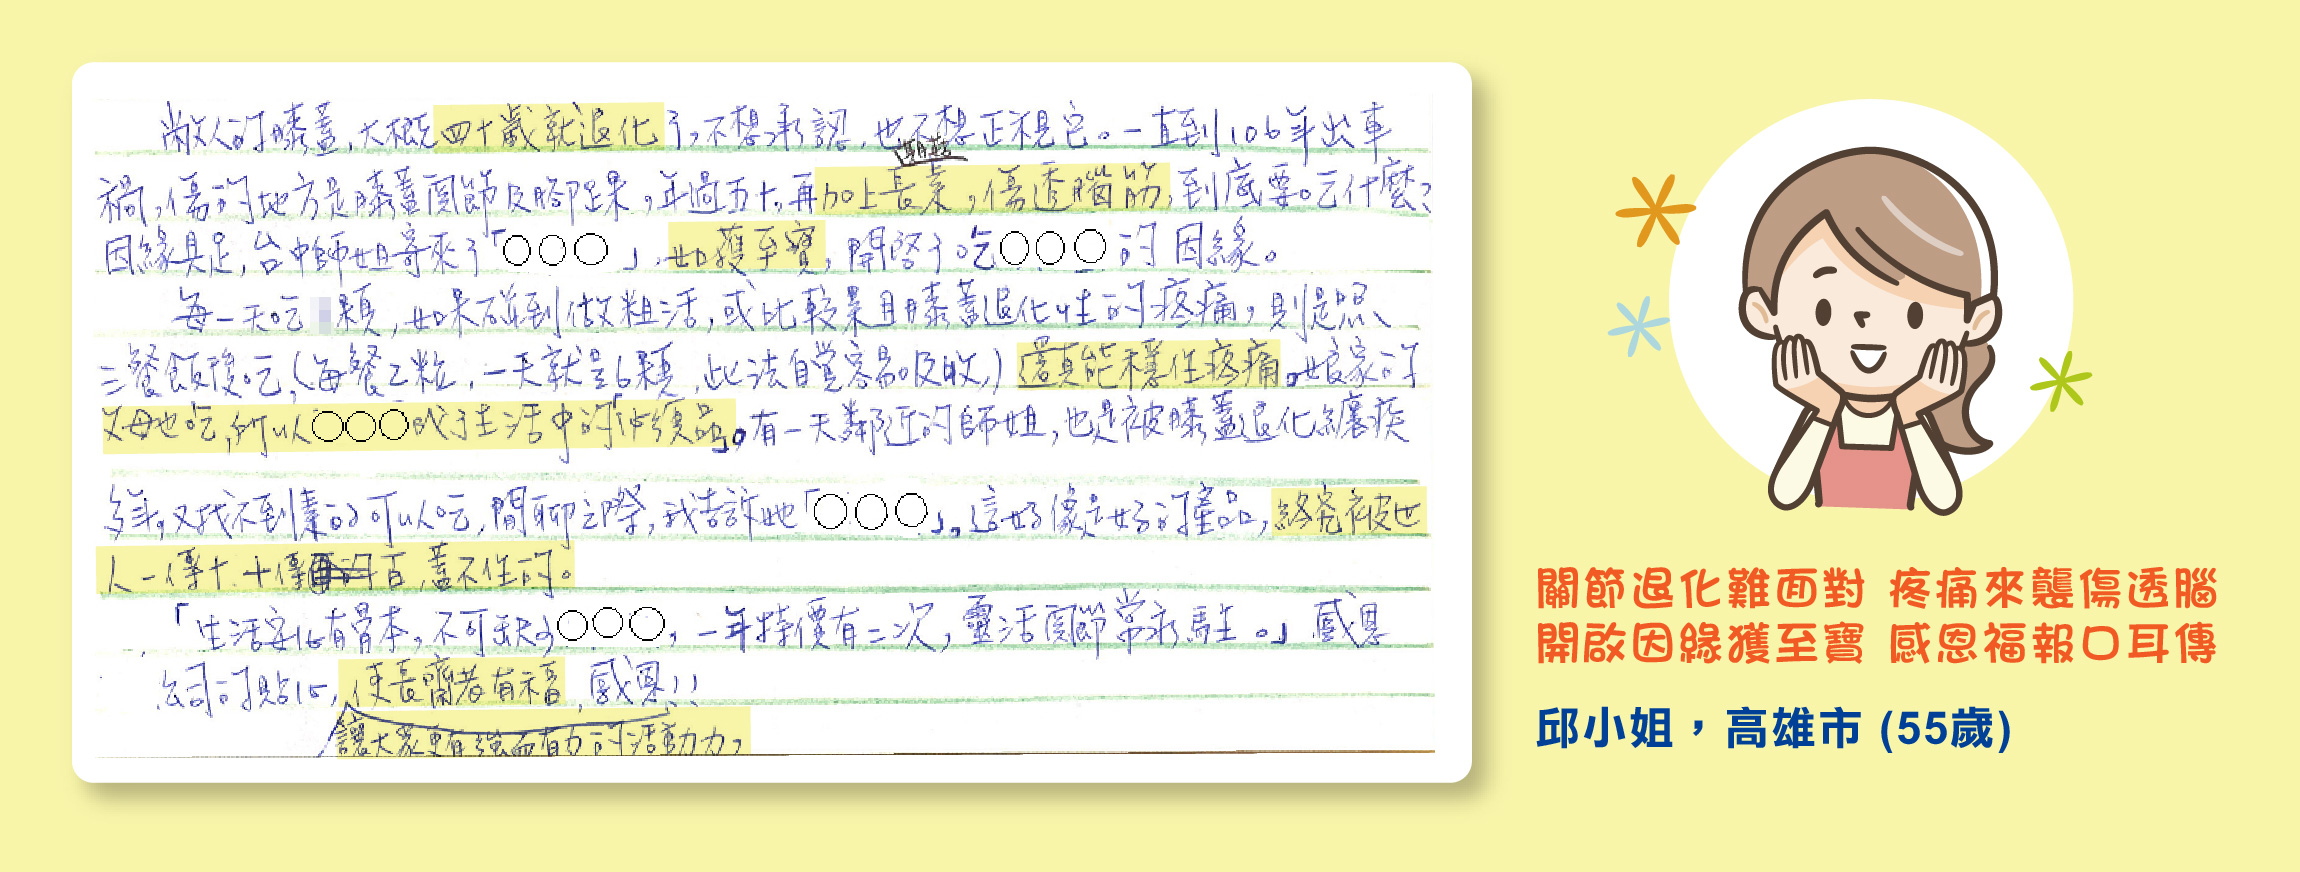 敝人的膝蓋,大概四十歲就退化了,不想承認,也不想正視它。一直到106年出車
禍,傷的地方是膝蓋關節及腳踝,年過五十,再加上長期茹素,傷透腦筋,到底要吃什麼?
因緣具足,台中師姐寄來了「○○○」,如獲至寶,開啓了吃○○○的因緣。
每一天吃 顆,如果碰到做粗活,或比較累且膝蓋退化性的疼痛,則是照、
三餐飯後吃(每餐2粒,一天就是6顆,此法自覺容易吸收,)還真能穩住疼痛。娘家的
父母也吃,所以○○○成了生活中的「必須品」。有一天鄰近的師姐,也是被膝蓋退化纏疾
多年,又找不到素的可以吃,閒聊之際,我告訴她「○○○」。這好像是好的產品,終究被世
人一傳十、十傳百,蓋不住的。
「生活安心有骨本,不可缺少○○○,一年特價有二次,靈活關節常永駐。」感恩
公司的貼心,使長齋者有福,感恩!!
讓大家更有強而有力的活動力,
關節退化難面對 疼痛來襲傷透腦
開啟因緣獲至寶 感恩福報口耳傳
邱小姐,高雄市 (55歲)